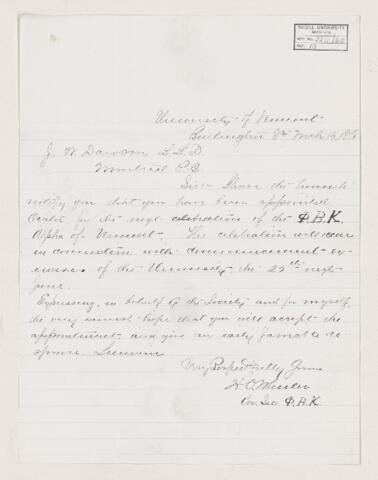 McGILL UNIVERSITY
ARCHIVES
ACC. NO.
REF. 13
University of Vermont
Burlington Vt
J. W. Dawson L.L.D.
Montreal P.Q.
Sir: I have the honor to
notify you that you have been appointed
Orator for the next celebration of the Φ.B.K.
Alpha of Vermont. The celebration will occur
in connection with commencement ex-
ercises of the University the 25th next
June.
Expressing, in behalf of the Society and for myself,
the very earnest hope that you will accept the
appointment and give an early favorable re-
sponse I remain
Very Respectfully Yours
H. O. Wheeler
Cor. Sec. Φ.B.K.